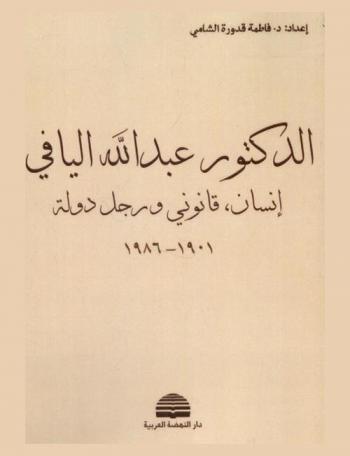 إعداد: د. فاطمة قدورة الشامي
الدكتور عبدالله اليافي
إنسان، قانوني ورجل دولة
١٩٠١ - ١٩٨٦
دار النهضة العربية